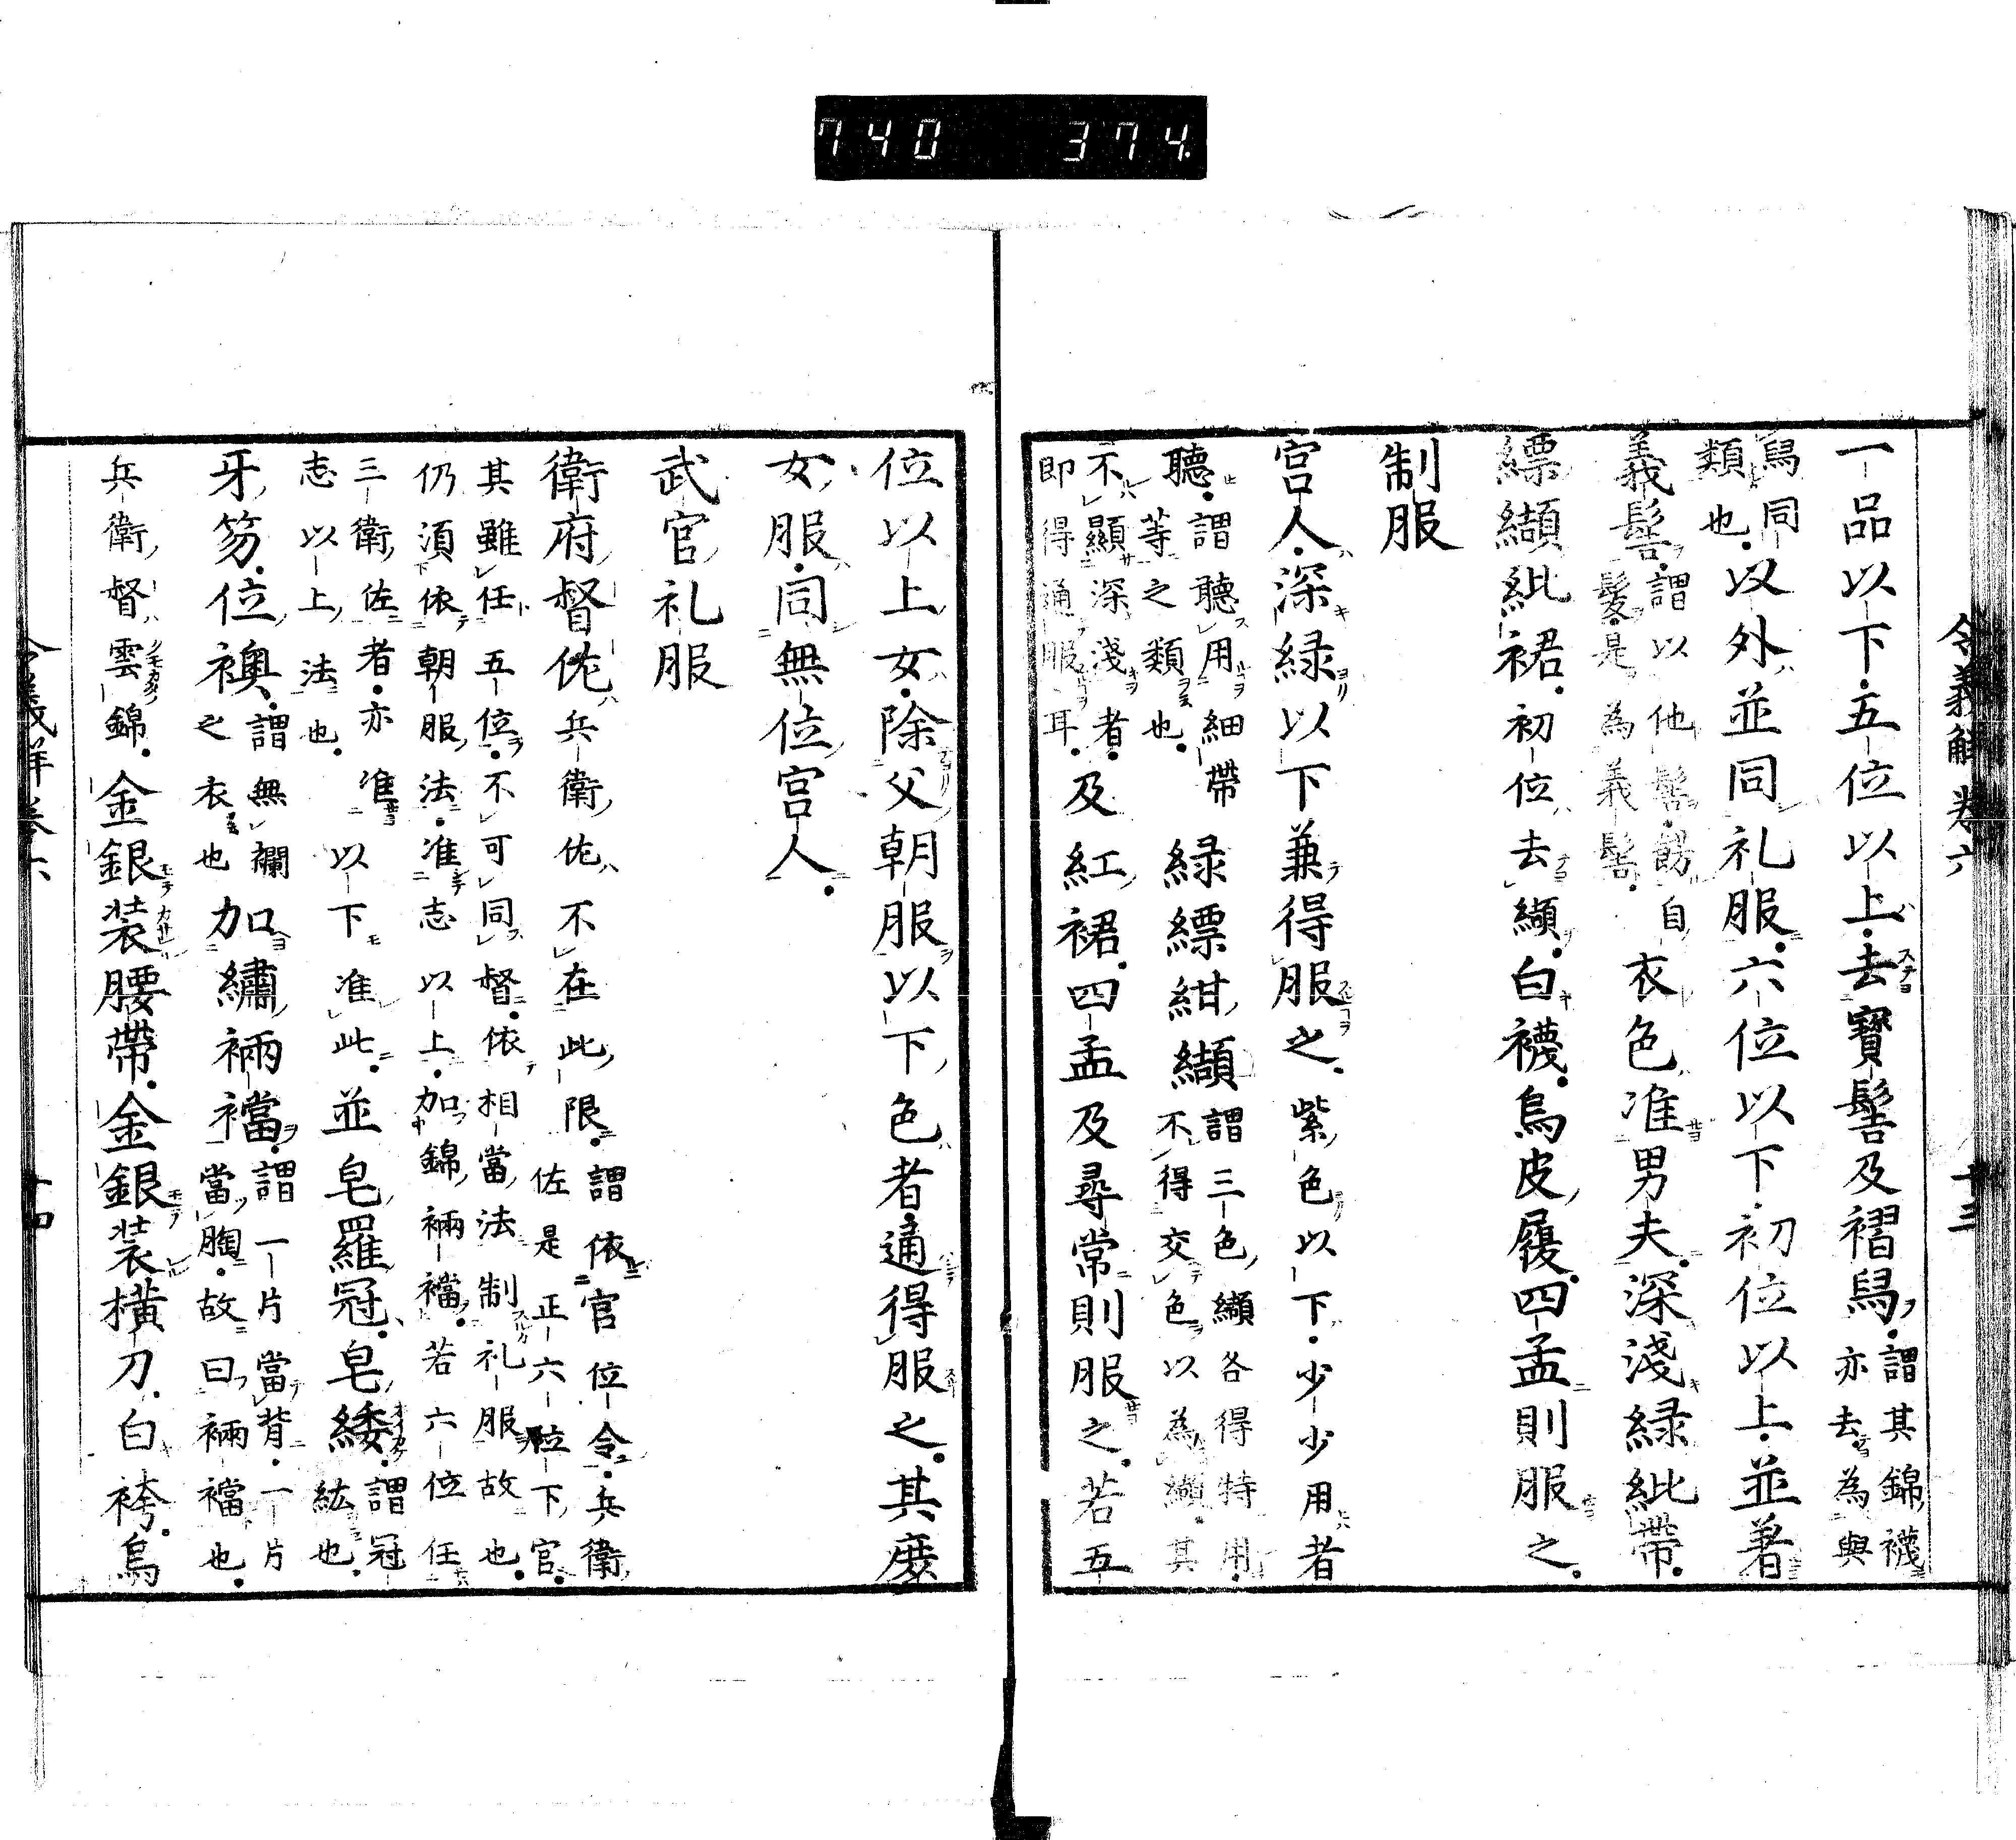 740 374
令義解卷六 十三
一品以下五位以上去寶髻及褶舄謂其錦襪
亦去為與
舄同
類也以外並同礼服六位以下初位以上並著
義髻謂以他髻餝自
髮是為義髻衣色准男夫深淺緑紕帶
縹纈紕裙初位去纈白襪烏皮履四孟則服之
制服
宮人深緑以下兼得服之紫色以下少少用者
聽謂聽用細帶
等之類也緑縹紺纈謂三色纈各得特用
不得交色以為纈其
不顯深淺者
即得通服耳及紅裙四孟及尋常則服之若五
位以上女除父朝服以下色者通得服之其庶
女服同無位宮人
武官礼服
衛府督佐兵衛佐不在此限謂依官位令兵衛
佐是正六位下官
其雖任五位不可同督依相當法制礼服故也
仍須依朝服法准志以上加錦裲襠若六位任
三衛佐者亦准
志以上法也以下准此並皂羅冠皂緌謂冠
紘也
牙笏位襖謂無襴
之衣也加繡裲襠謂一片當背一片
當胸故曰裲襠也
兵衛督雲錦金銀装腰帶金銀装横刀白袴烏
令義解卷六 十四